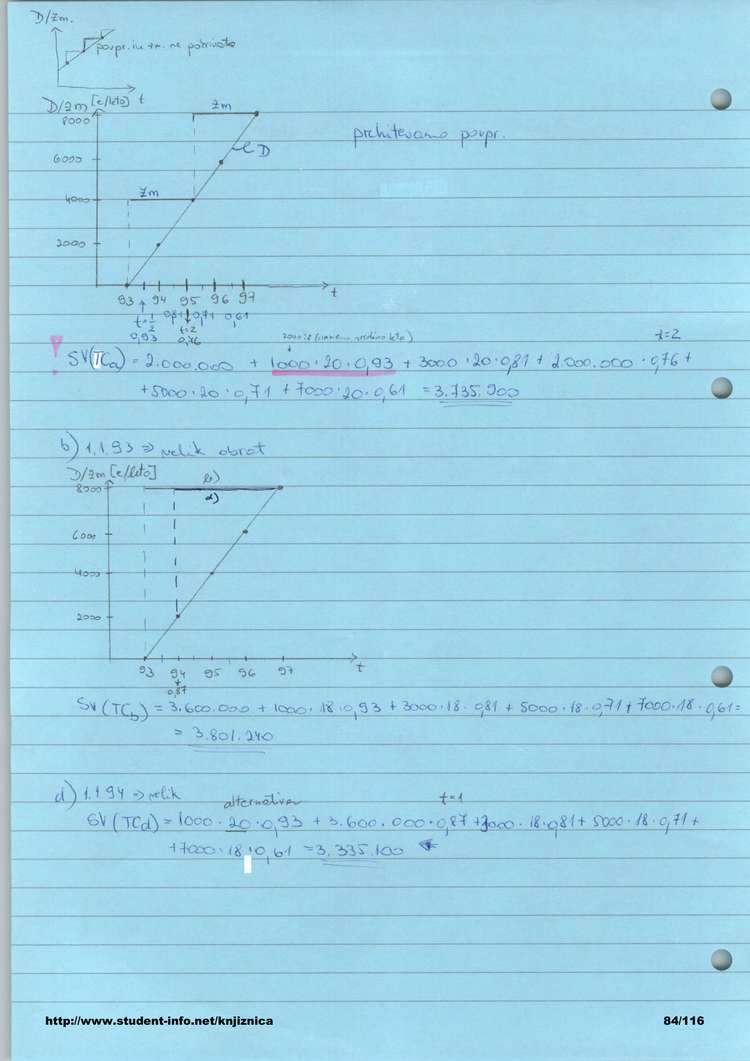 D/Zm.
povpr. in +m. ne pokrivata
t
D/Zm [e/leto]
8000
Zm
D
prehitevamo povpr.
6000
4000
Zm
2000
93 94 95 96 97 t
t=1/2 0,81 0,71 0,61
0,93 t=2
0,76
t=2
! SV(TCa) = 2.000.000 + 1000·20·0,93 + 3000·20·0,81 + 2.000.000·0,76 +
+5000·20·0,71 + 7000·20·0,61 = 3.735.900
b) 1.1.93 => velik obrat
D/Zm [e/leto]
8000
b)
d)
6000
4000
2000
93 94 95 96 97 t
0,87
SV(TCb) = 3.600.000 + 1000·18·0,93 + 3000·18·0,81 + 5000·18·0,71 + 7000·18·0,61 =
= 3.801.240
d) 1.1.94 => velik
alternativa t=1
SV(TCd) = 1000·20·0,93 + 3.600.000·0,87 + 3000·18·0,81 + 5000·18·0,71 +
+7000·18·0,61 = 3.335.100
http://www.student-info.net/knjiznica 84/116